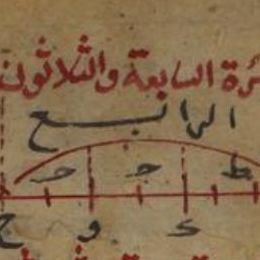 ئرة السابعة والثلاثون
الرابع
ط ج د
ك و ح